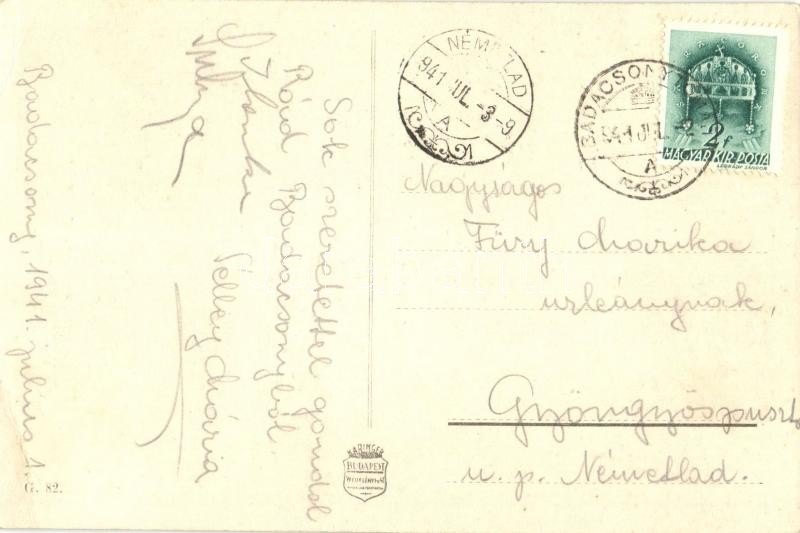 Badacsony, 1941. július 1.
Sok szeretettel gondol
Rád Badacsonyból
Ibonka Sélley Mária
G. 82.
KARINGER
BUDAPEST
NEMETLAD
941 JUL. -3 -9
A
BADACSONY
941 JUL. -2
A
2f
MAGYAR KIR. POSTA
LÉGRÁDY SÁNDOR
Nagyságos
Füry Marika
urleánynak,
Gyöngyöspuszta
u. p. Németlad.